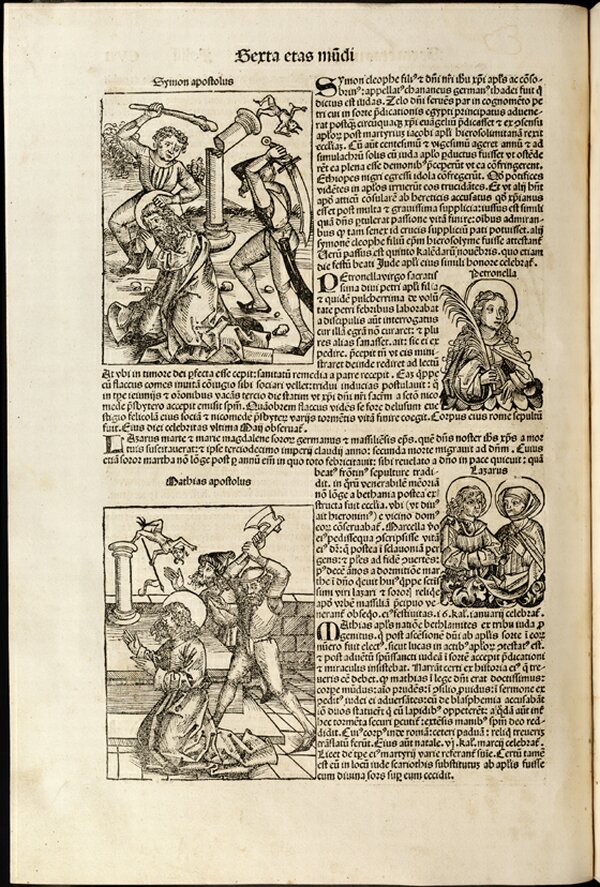 Sexta etas mūdi
Symon apostolus
Symon cleophe filiꝰ ⁊ dn̄i nr̄i ihu xp̄i apl̓s ac cōso-
brinꝰ: rappellatꝰ chananeus germanꝰ thadei fuit q
dictus est iudas. Zelo dn̄i feruēs par in cognomēto pe
tri cui in sorte p̄dicationis egypti principatus aduene-
rat postq̄ xp̄i euāgeliū p̄dicasset
apl̓or post martyriuȝ iacobi apl̓i hierosolimitanā rexit
eccl̓iaȝ. Cū aūt centesimū ⁊ vigesimū ageret annū ⁊ ad
simulachrū solus cū iuda apl̓o ꝓductus fuisset vt ostēde
rēt ea plena esse demonibꝰ p̄ceperūt vt ea cōfringerent.
Ethiopes nigri egressi idola cōfregerūt. Qd̓ pōtifices
vidētes in apl̓os irruerūt eos trucidātes. Et vt alij
apō atticū cōsularē ab hereticis accusatus qd̓ xp̄ianus
esset post multa ⁊ grauissima supplicia: iussus est simili
quā dn̄s ꝑtulerat passione vitā finire: oībus admiran-
bus ꝙ tam senex id crucis suppliciū pati potuisset. alij
symonē cleophe filiū ep̄m hierosolyme fuisse attestant̄
Verū passus est quinto kalēdarū nouēbris. quo etiam
die festū beati Jude apl̓i eius simili honore celebrat̄.
Petronella
Petronella virgo sacratis
sima diui petri apl̓i filia
⁊ quidē pulcherrima de volū
tate petri febribus laborabat
a discipulis aūt interrogatus
cur illā egrā nō curaret: ⁊ plu
res alias sanasset. ait: sic ei ex
pedire. p̄cepit m̄ vt eis mini
straret deinde rediret ad lectū
At vbi in timore dei ꝑfecta esse cepit: sanitatū remedia a patre recepit. Eaȝ q̄ppe
cū flaccus comes inuitā cōiugio sibi sociari vellet: tridui inducias postulauit: q
in tpe ieiunijs ⁊ or̄onibus vacās tercio die statim vt xp̄i dn̄i nr̄i sacm̄ a sctō nico
mede p̄sbytero accepit emisit sp̄m. Quāobrem flaccus vidēs se fore delusum eue
stigio felicolā eius sociā ⁊ nicomedē p̄sbyterū varijs tormētis vitā finire coegit. Corpus eius rome sepultū
fuit. Eius diei celebritas vltima Maij obseruat̄.
Lazarus marte ⁊ marie magdalene soror germanus ⁊ massiliēsis ep̄s. quē dn̄s noster ihs xp̄s a mor
tuis suscitauerat: ⁊ ipse terciodecimo imperij claudij anno: secunda morte migrauit ad dn̄m. Cuius
etiā soror martha nō lōge post ꝑ annū eīn quo toto febricitauit: sibi reuelato a dn̄o in pace quieuit: quā
Lazarus
beatꝰ frōtinꝰ sepulture tradi
dit. in q̄rū venerabilē memoriā
nō lōge a bethania postea ex
structa fuit eccl̓ia. vbi (vt diuꝰ
ait hieronimꝰ) e vicino domꝰ
eoꝝ cōseruabat̄. Marcella vo
eiꝰ pedissequa cōscripsisse vitā
eiꝰ dr̄: q̄ postea i sclauonia per
gens: ⁊ pl̓es ad fidē ꝯuertēs:
pꝰ decē ānos a dormitiōe mar
the i dn̄o q̄euit huiꝰ q̄ppe sctis
simi viri lazari ⁊ soroꝝ reliq̄e
apō vrbē massiliā p̄cipuo ve-
nerant̄ obseq̄o. eiꝰ festiuitas. i 6. kal̓. ianuarij celebrat̄.
Mathias apostolus
Mathias apl̓s natiōe bethlamites ex tribu iuda ꝓ
genitus. q̄ post ascēsionē dn̄i ab apl̓is sorte i eoꝝ
nūero fuit electꝰ. sicut lucas in actibꝰ apl̓oꝝ ꝯtestat̄ est.
⁊ post aduētū sp̄ussancti iudeā i sorte accepit p̄dicationi
⁊ miraculis insistebat. Narrāt certi ex historia eiꝰ q̄ tre-
ueris eē debet. ꝙ mathias i lege dn̄i erat doctissimus:
corpe mūdus: aīo prudēs: i ꝯsilio ꝓuidus: i sermone ex
peditꝰ iudei ei aduersātes: eū de blasphemia accusabāt
iō duos statuerūt q̄ eū lapidibꝰ oppeterēt: a q̄da aūt int̄
hec tormēta securi ꝑcutit̄: extēsis manibꝰ sp̄m deo red-
didit. Cuiꝰ corpꝰ inde romā: ceteri paduā: reliq̄ treueris
trāslatū ferūt. Eius aūt natale. vj. kal̓. marcij celebrat̄.
Licet de tpe eiꝰ martyrij varie referant̄ sn̄ie. Certū tamē
est eū in locū iude scariothis substitutuȝ ab apl̓is fuisse
cum diuina sors suꝑ eum cecidit.